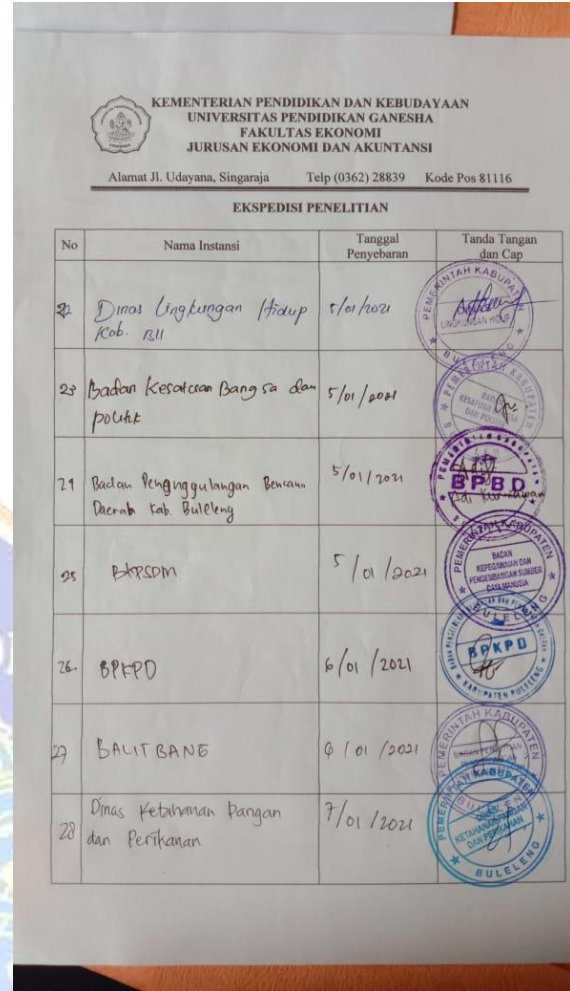 KEMENTERIAN PENDIDIKAN DAN KEBUDAYAAN
UNIVERSITAS PENDIDIKAN GANESHA
FAKULTAS EKONOMI
JURUSAN EKONOMI DAN AKUNTANSI
Alamat Jl. Udayana, Singaraja Telp (0362) 28839 Kode Pos 81116
EKSPEDISI PENELITIAN
No Nama Instansi Tanggal Penyebaran Tanda Tangan dan Cap
22 Dinas Lingkungan Hidup 5/01/2021
Kab. Bll
PEMERINTAH KABUPATEN
LINGKUNGAN HIDUP
BULELENG
23 Badan Kesatuan Bangsa dan 5/01/2021
politik
PEMERINTAH KABUPATEN
KESATUAN BANGSA
DAN POLITIK
24 Badan Penanggulangan Bencana 5/01/2021
Daerah Kab. Buleleng
BPBD
25 BKPSDM 5/01/2021
PEMERINTAH KABUPATEN
BADAN
KEPEGAWAIAN DAN
PENGEMBANGAN SUMBER
DAYA MANUSIA
BULELENG
26. BPKPD 6/01/2021
BPKPD
KABUPATEN BULELENG
27 BALITBANG 6/01/2021
PEMERINTAH KABUPATEN
BADAN PENELITIAN
28 Dinas Ketahanan Pangan 7/01/2021
dan Perikanan
PEMERINTAH KABUPATEN
DINAS
KETAHANAN PANGAN
DAN PERIKANAN
BULELENG